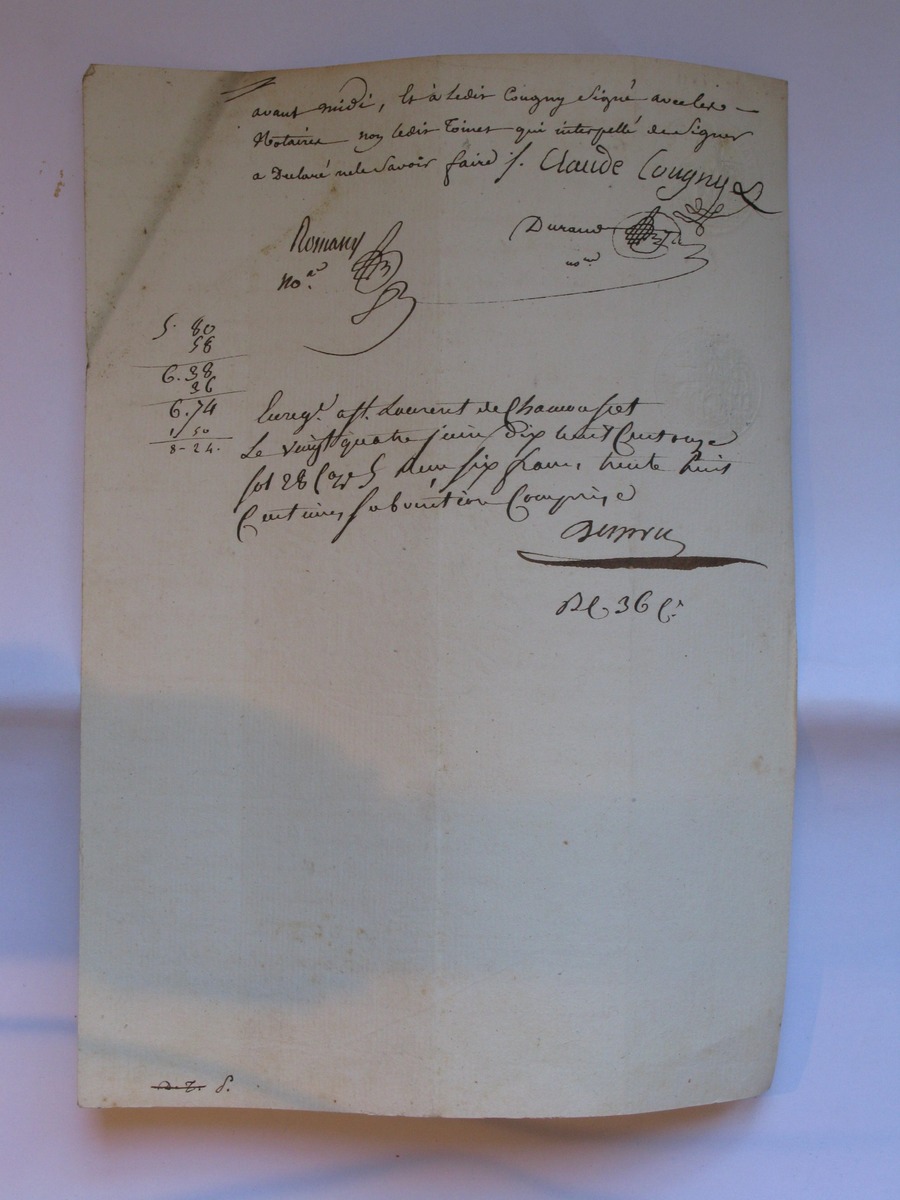 avant midi, Et à Ledit Cougny signé avec les
Notaires non ledit Toinet qui interpellé de signer
a Declaré ne le savoir faire ./. Claude Cougny
Durand
nore
Romany
no.e
5. 80
58
6. 38
36
6. 74
1, 50
8 - 24.
Enreg.é à St. Laurent de Chamousset
Le vingt quatre juin dix huit Cent onze
fol 28 Ca 5 Reçu six francs trente huit
Centimes subvention Comprise
36 C.s